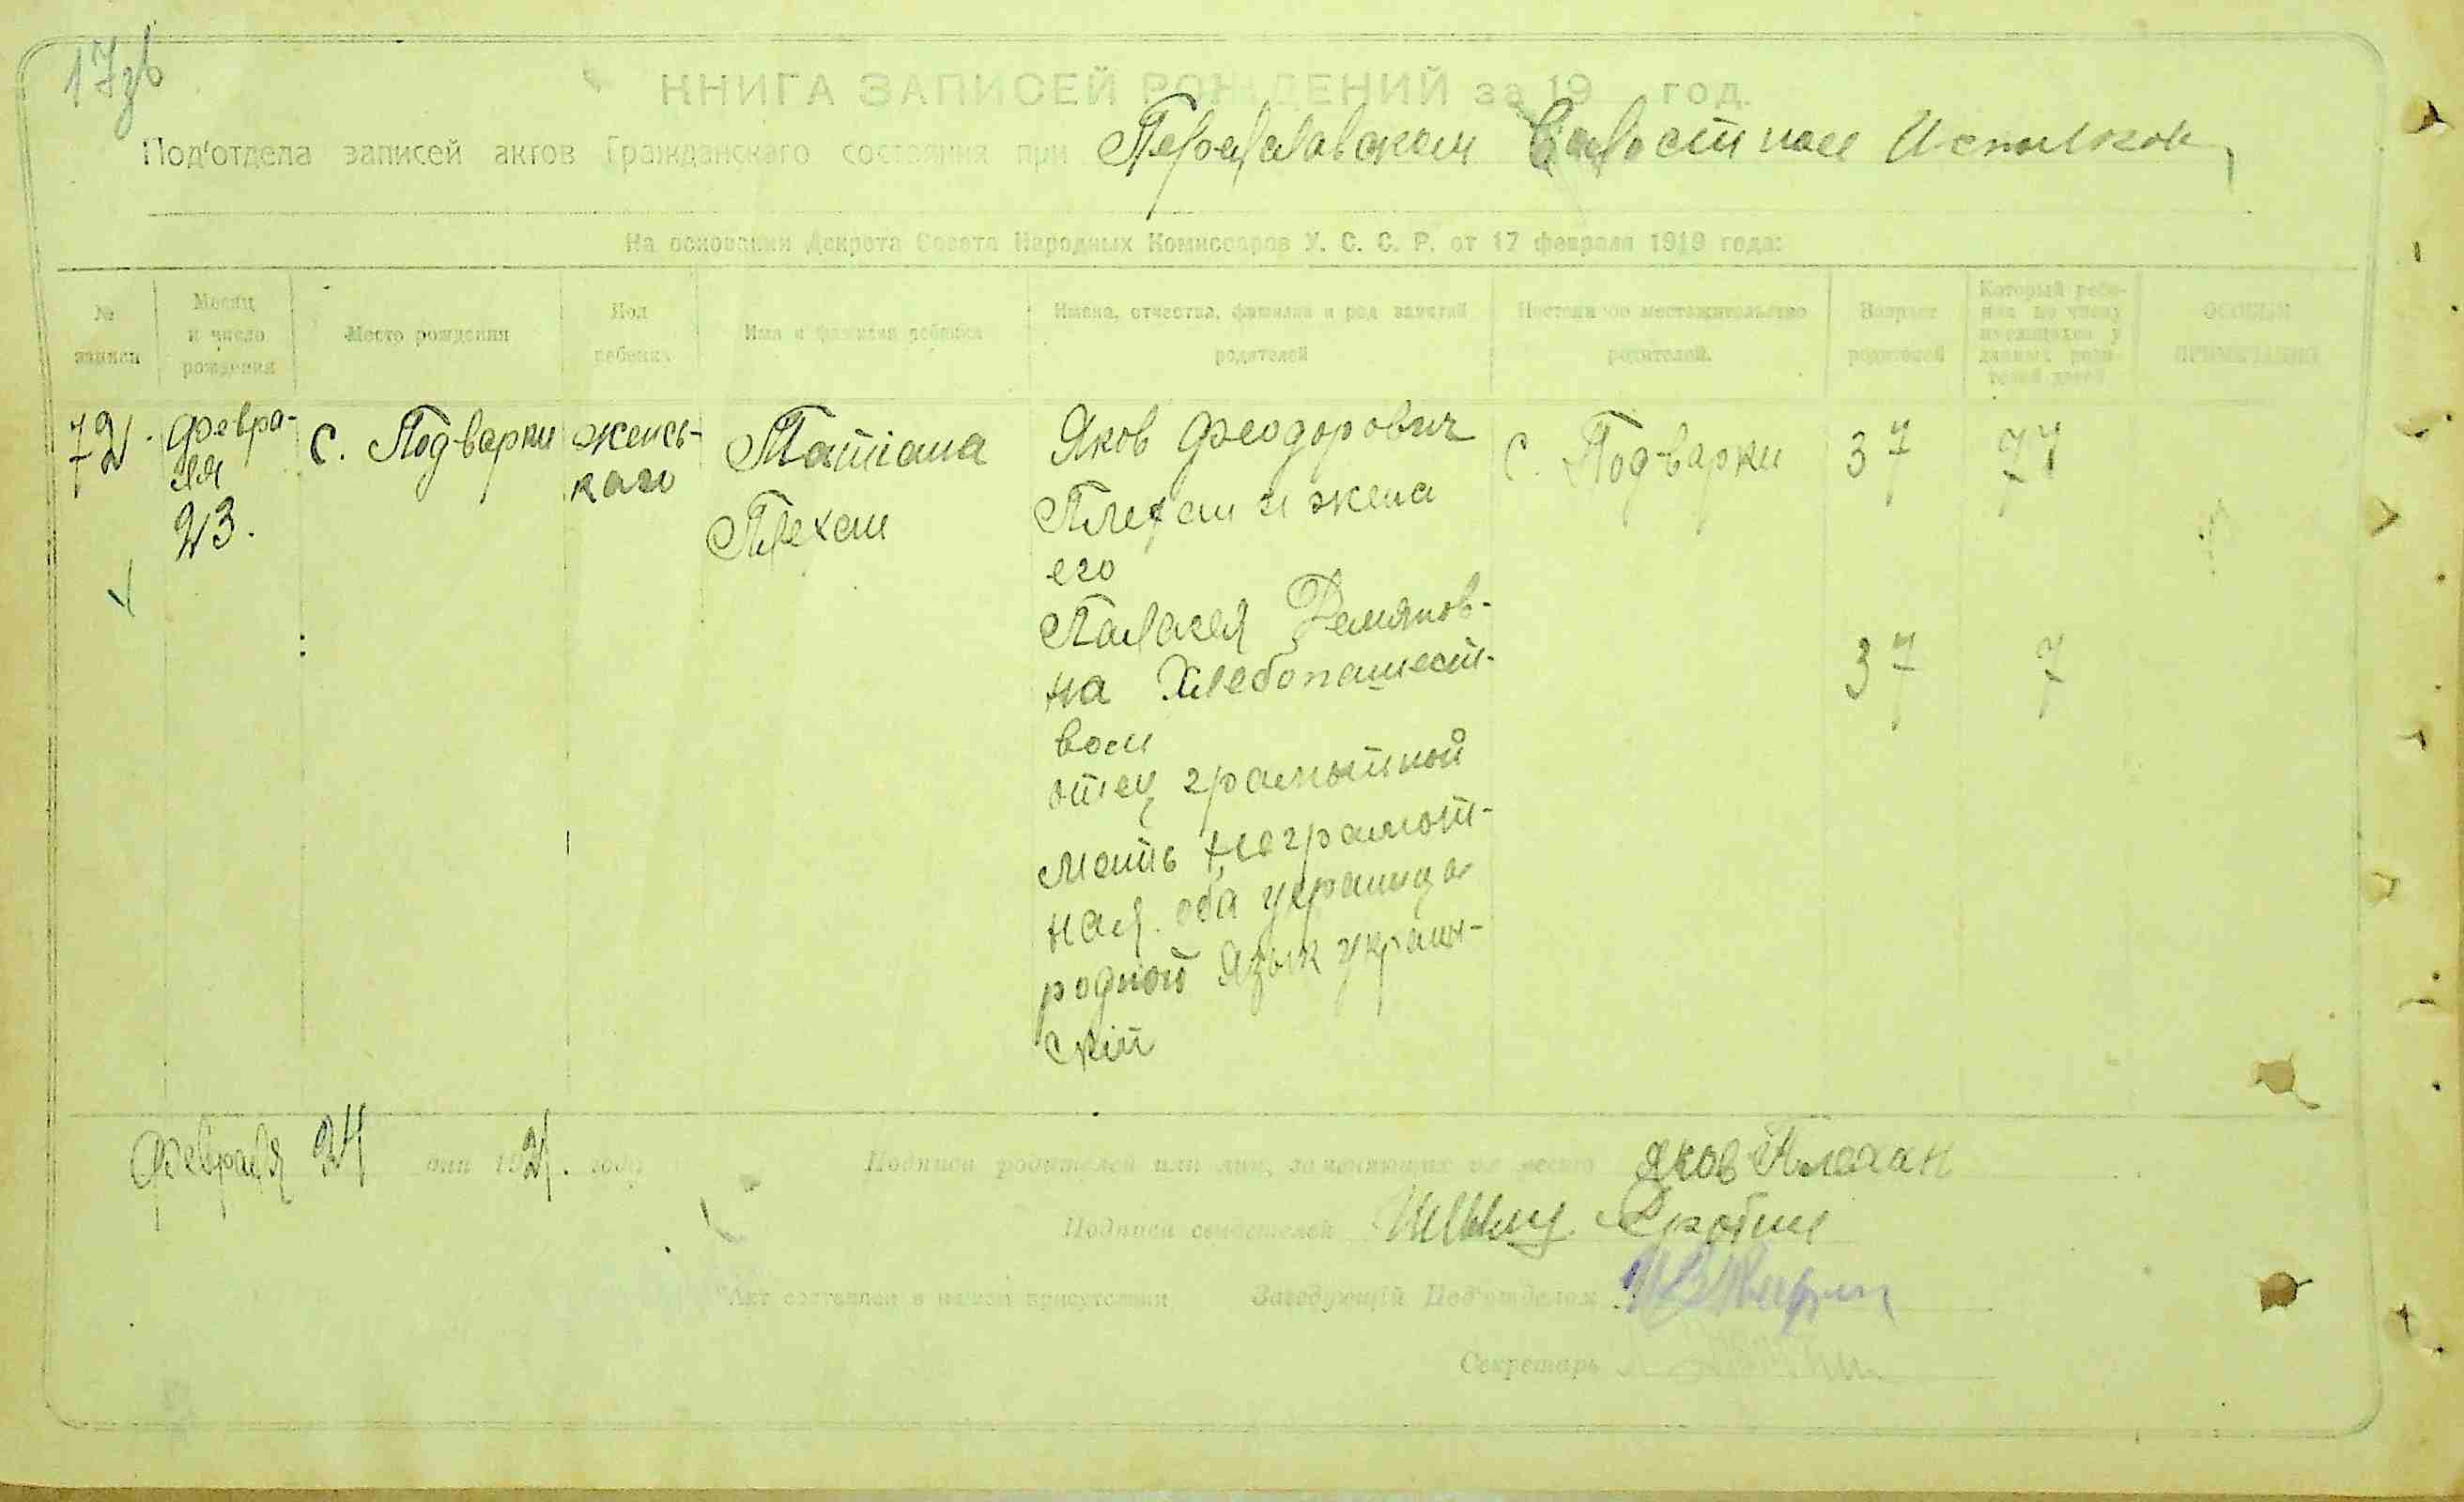 17зв
КНИГА ЗАПИСЕЙ РОЖДЕНИЙ за 19 год.
Под'отдела записей актов Гражданскаго состояния при Переяславском Волостном Исполком
На основании Декрета Совета Народных Комиссаров У. С. С. Р. от 17 февраля 1919 года:
№ записи
Месяц и число рождения
Место рождения
Пол ребенка
Имя и фамилия ребенка
Имена, отчества, фамилия и род занятий родителей
Постоянное местожительство родителей.
Возраст родителей
Который ребенок по числу имеющихся у данных родителей детей
ОСОБЫЯ ПРИМЕЧАНИЯ
72.
Февра-
ля
23.
с. Подварки
женсь-
каго
Татіана
Плехан
Яков Феодорович
Плехан и жена
его
Палагея Демянов-
на Хлебопашест-
вом
отец грамотной
мать неграмот-
ная. оба украинца
родной язык украин-
скій
с. Подварки
37
37
7
7
Февраля 24 дня 1921. года
Подписи родителей или лиц, заменяющих их место Яков Плахан
Подписи свидетелей
Акт составлен в нашем присутствии Заведующій Под'отделом
Секретарь